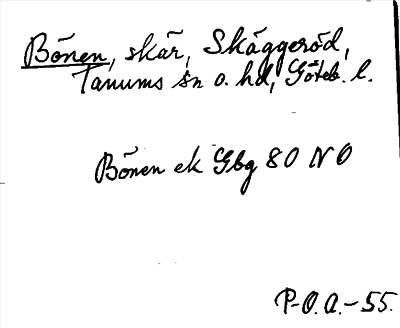 Bönen, skär, Skäggeröd,
Tanums sn o. hd, Göteb. l.
Bönen ek Gbg 80 NO
P-O.A.-55.